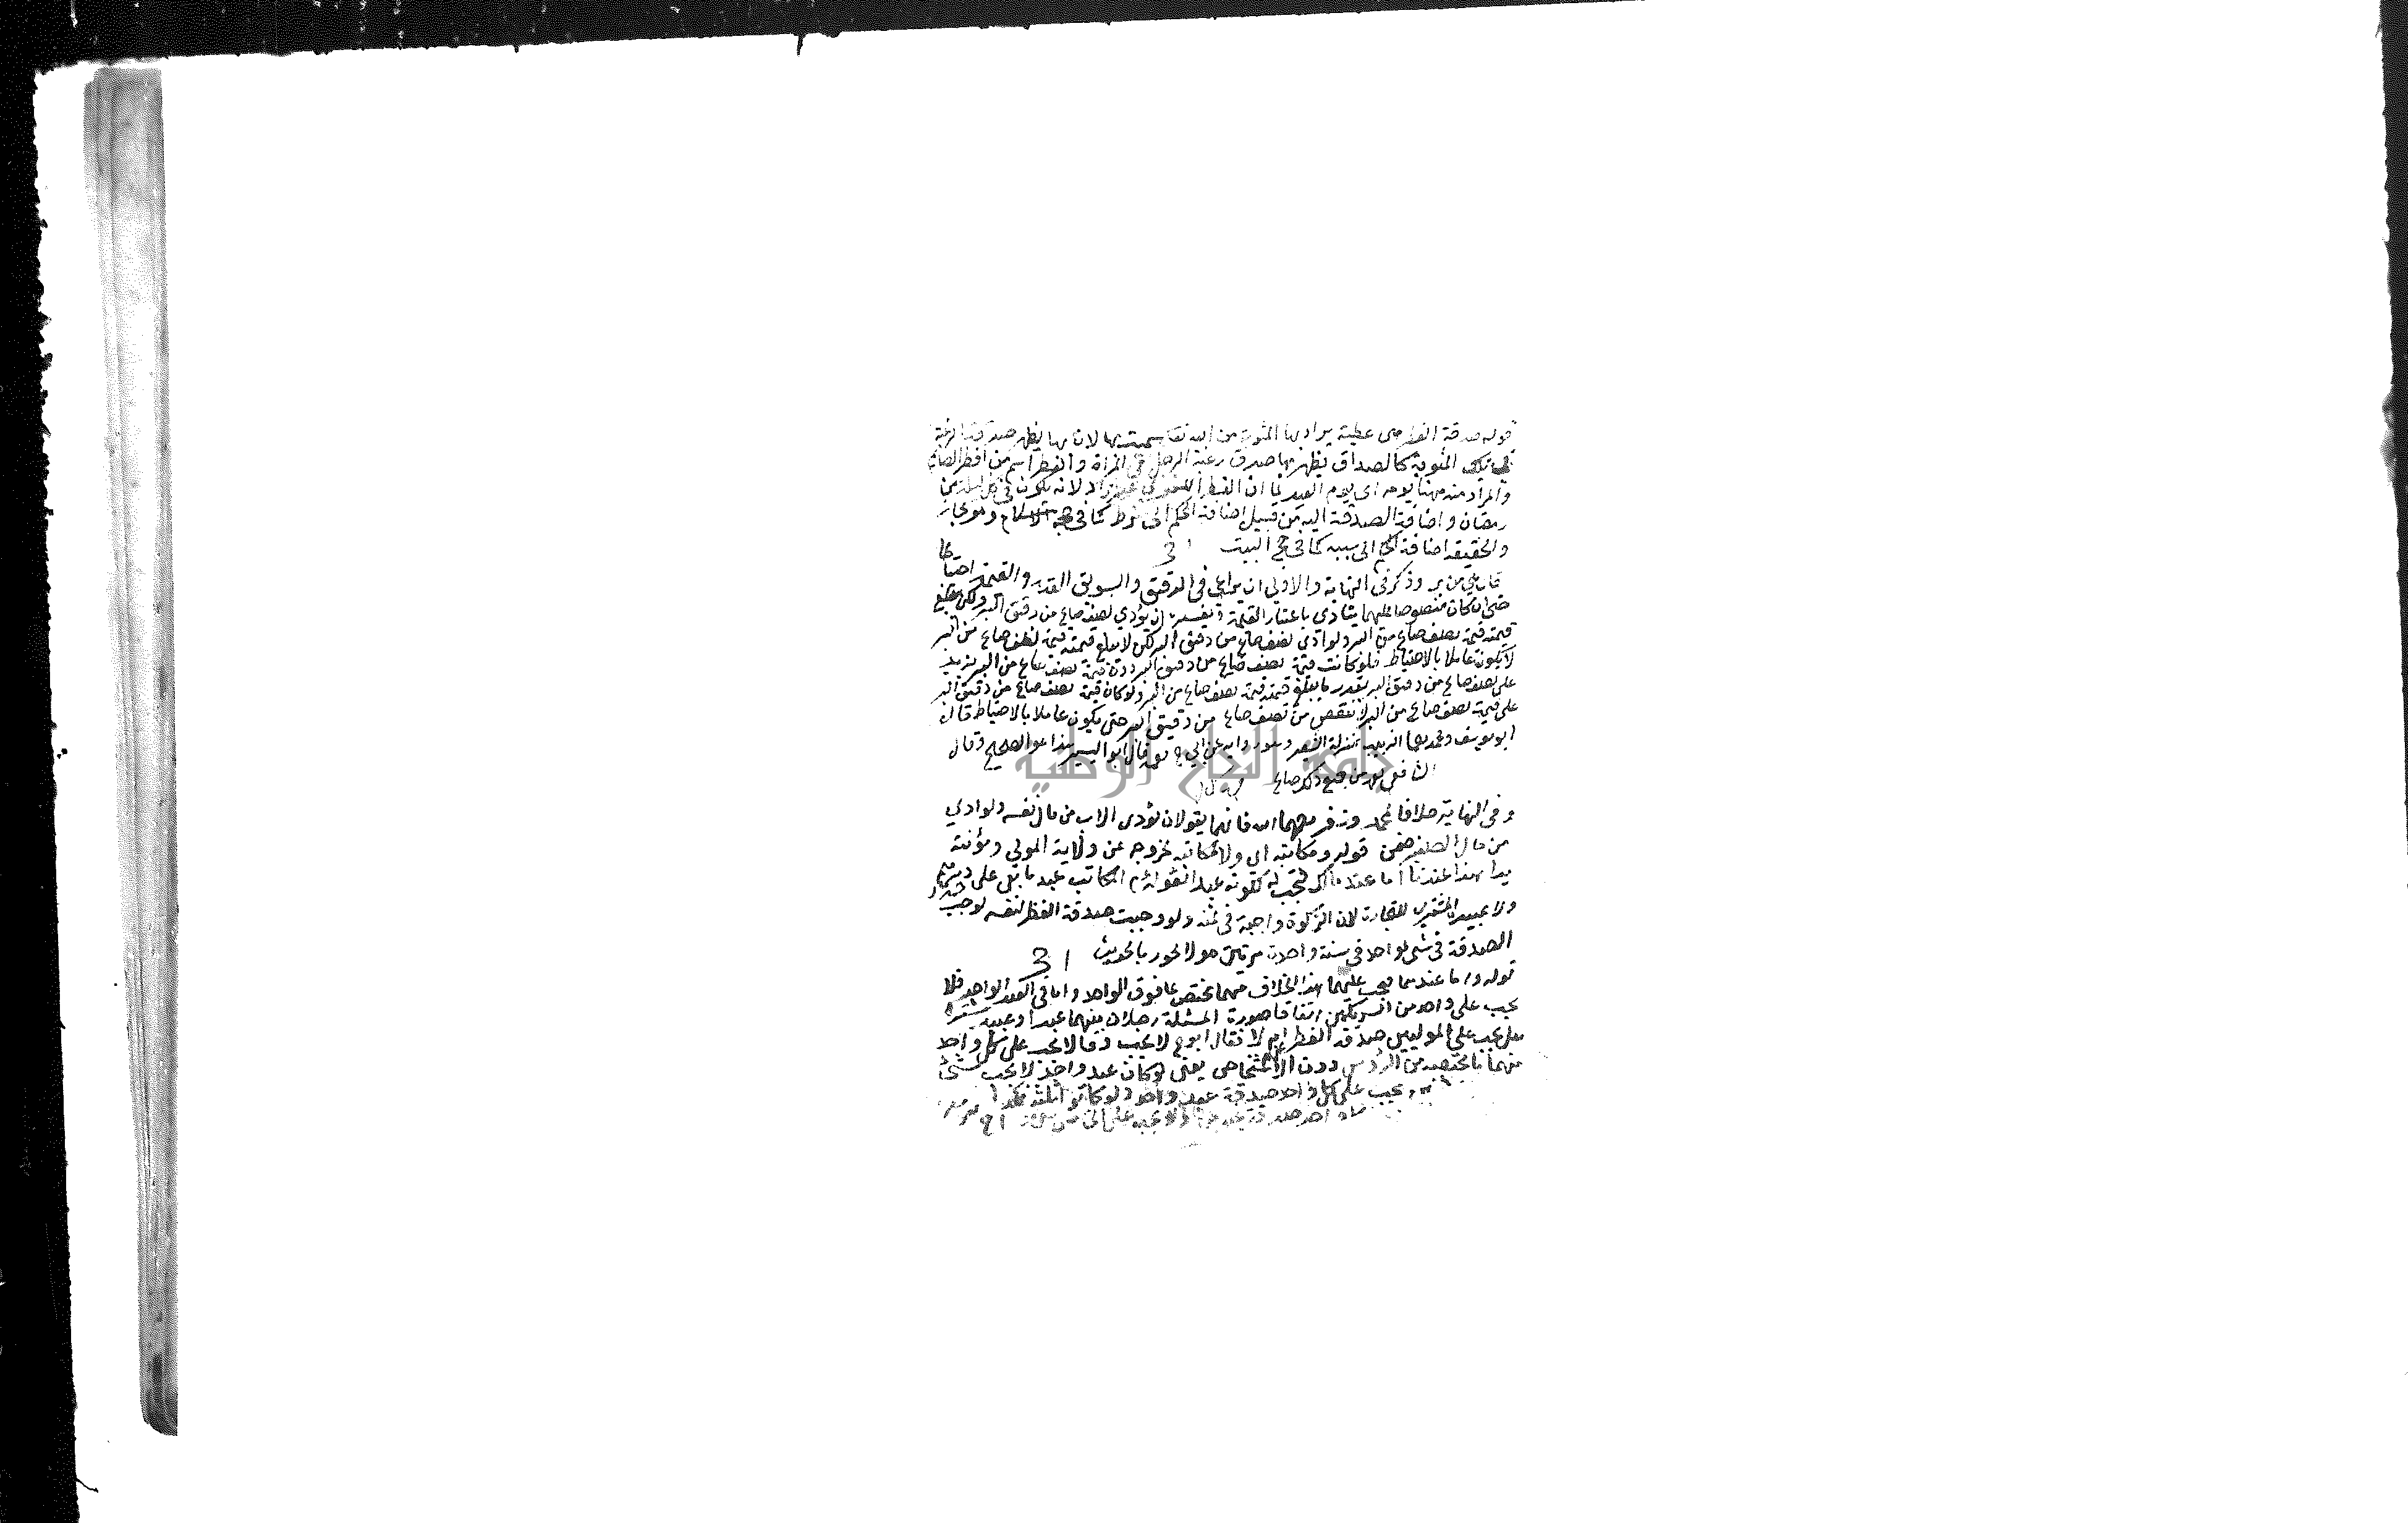 قوله صدقة الفطر هى عطية يراد بها المثوبة من الله تعا سميت بها لان بها يظهر صدق الرغبة
في تلك المثوبة كالصداق يظهر بها صدق رغبة الرجل في المرأة والفطر اسم من افطر الصائم
والمراد منه ههنا يومه اى يوم العيد لما ان الفطر اللغوي غير مراد لانه يكون في كل ليلة من
رمضان واضافة الصدقة اليه من قبيل اضافة الحكم الى شرط كما فى حجة الاسلام وهو مجاز
والحقيقة اضافة الحكم الى سببه كما فى حج البيت
من بر وذكر فى النهاية والاولى ان يراعى فى الدقيق والسويق القدر والقيمة احتياطا
حتى ان كان منصوصا عليهما يتادى باعتبار القيمة وتفسيره ان يؤدي نصف صاع من دقيق البر ولكن
قيمته قيمة نصف صاع من البر ولو ادى نصف صاع من دقيق البر لكن لا يبلغ قيمته قيمة نصف صاع من البر
لا يكون عاملا بالاحتياط فلو كانت قيمة نصف صاع من دقيق البر دون قيمة نصف صاع من البر يزيد
على نصف صاع من دقيق البر بقدر ما يبلغ قيمته قيمة نصف صاع من البر ولو كان قيمة نصف صاع من دقيق البر
على قيمة نصف صاع من البر لا ينقص من نصف صاع من دقيق البر حتى يكون عاملا بالاحتياط قال
ابو يوسف ومحمد الزبيب بمنزلة الشعير وهو رواية عن ابي ح قال ابو اليسر هذا هو الصحيح وقال
الشافعي من جميع ذلك صاع
جامعة النجاح الوطنية
وفى النهاية خلافا لمحمد وزفر رحمهما الله فانهما يقولان يؤدى الاب من مال نفسه ولو ادي
من مال الصغير ضمن قوله ومكاتبه اى ولا لمكاتبه لخروجه عن ولاية المولى ومؤنته
هذا عندنا اما عند مالك فتجب لكونه عبدا لقوله المكاتب عبد ما بقى على درهم
ولا عبيده المشترى للتجارة لان الزكوة واجبة فى ولو وجبت صدقة الفطر لنفسه لوجب
الصدقة فى شى واحد فى سنة واحدة مرتين بالحديث
قوله واما عندهما فيجب عليهما هذا الخلاف مختص بما فوق الواحد واما فى العبد الواحد فلا
يجب على واحد من الشريكين اتفاقا صورة المسئلة رجلان بينهما عبد او عبيد
هل يجب على الموليين صدقة الفطر ام لا فقال ابو ح لا يجب وقالا يجب على كل واحد
منهما ما يخصه من الرؤس دون الاشخاص يعنى لو كان عبد واحد لا يجب شئ
يجب على كل واحد صدقة عبد واحد ولو كانوا ثلثة فكذا
واحد صدقة عبد